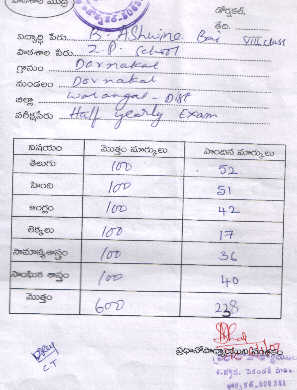 డోర్నకల్,
తేది.
విద్యార్థి పేరు B. AShwine Bai VIII class
పాఠశాల పేరు Z.P. School
గ్రామం Dornakal
మండలం Dornakal
జిల్లా Warangal - Dist
పరీక్షపేరు Half yearly Exam
విషయం మొత్తం మార్కులు పొందిన మార్కులు
తెలుగు 100 52
హింది 100 51
ఆంగ్లం 100 42
లెక్కలు 100 17
సామాన్యశాస్త్రం 100 36
సాంఘిక శాస్త్రం 100 40
మొత్తం 600 238
C.T
ప్రధానోపాధ్యాయుని సంతకం